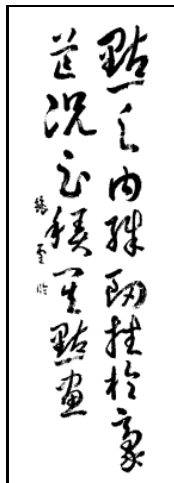 點之內殊衄挫於豪
芒況云積其點畫